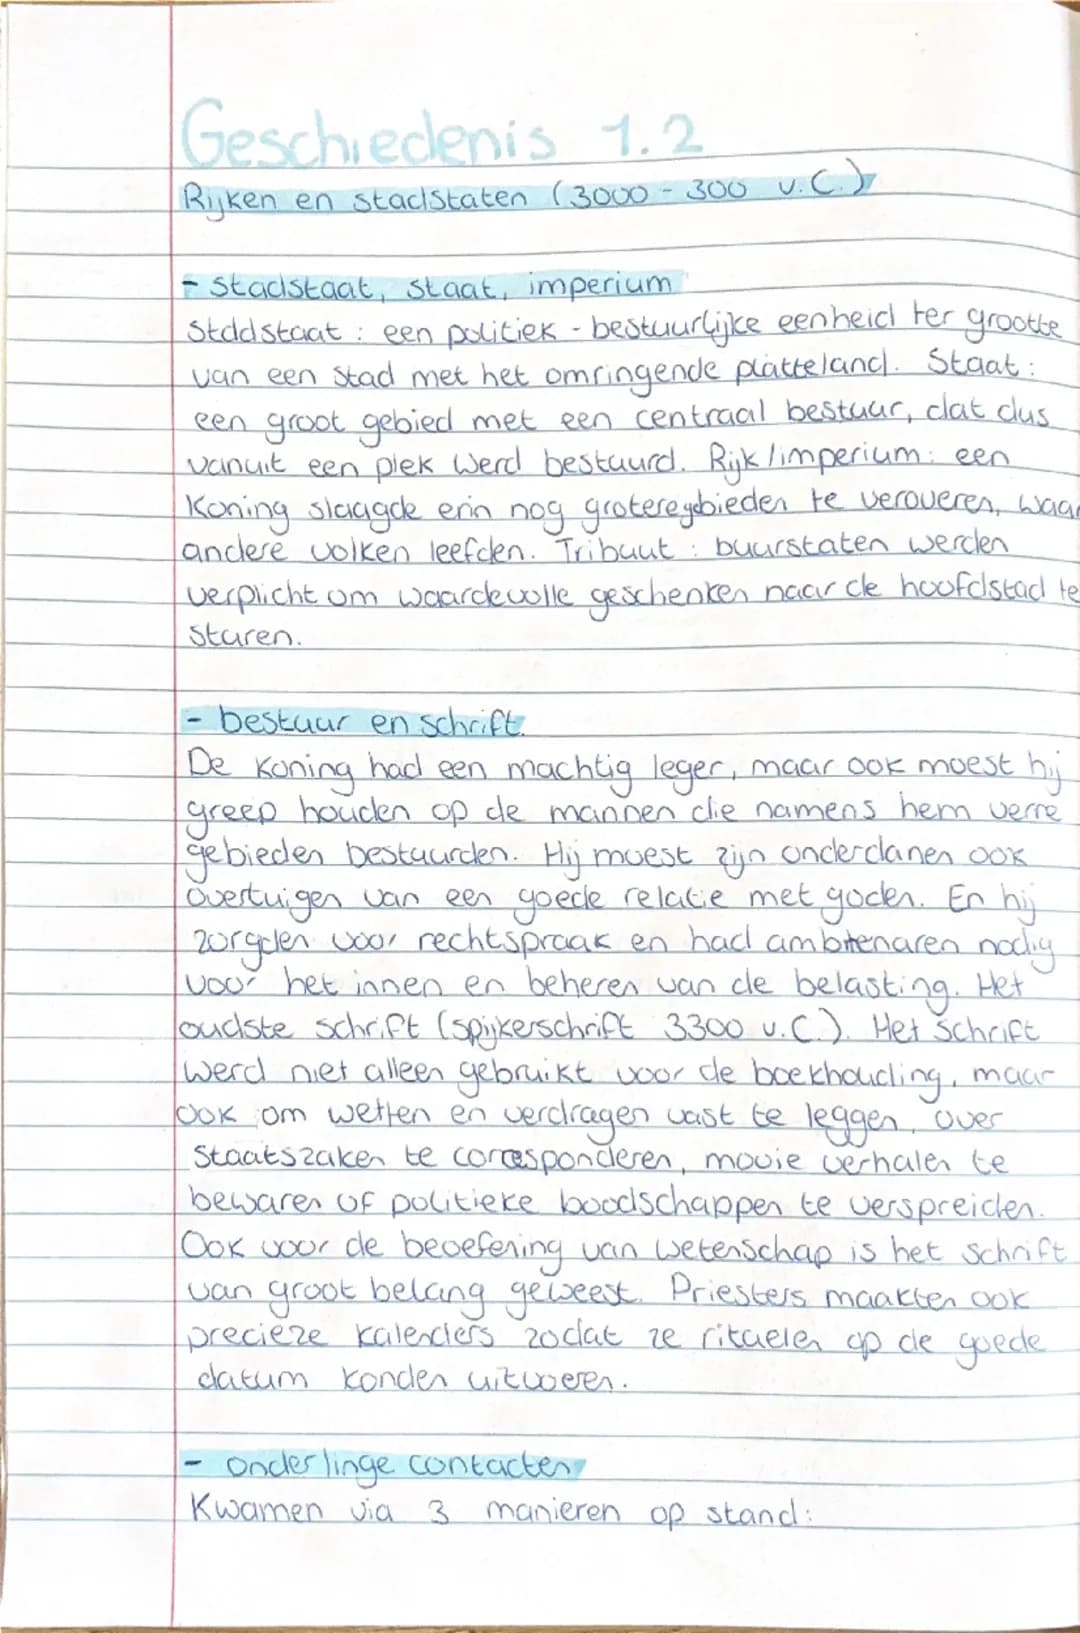 Geschiedenis 1.2
Rijken en stadstaten (3000 - 300 v.C.)
- stadstaat, staat, imperium
Stadstaat : een politiek - bestuurlijke eenheid ter grootte
van een stad met het omringende platteland. Staat :
een groot gebied met een centraal bestuur, dat dus
vanuit een plek werd bestuurd. Rijk/imperium: een
Koning slaagde erin nog grotere gebieden te veroveren, waar
andere volken leefden. Tribuut : buurstaten werden
verplicht om waardevolle geschenken naar de hoofdstad te
sturen.
- bestuur en schrift.
De Koning had een machtig leger, maar ook moest hij
greep houden op de mannen die namens hem verre
gebieden bestuurden. Hij moest zijn onderdanen ook
overtuigen van een goede relatie met goden. En hij
zorgden voor rechtspraak en had ambtenaren nodig
voor het innen en beheren van de belasting. Het
oudste schrift (spijkerschrift 3300 v.C.). Het schrift
werd niet alleen gebruikt voor de boekhouding, maar
ook om wetten en verdragen vast te leggen, over
Staatszaken te corresponderen, mooie verhalen te
bewaren of politieke boodschappen te verspreiden.
Ook voor de beoefening van wetenschap is het schrift
van groot belang geweest. Priesters maakten ook
precieze kalenders zodat ze rituelen op de goede
datum konden uitvoeren.
- onderlinge contacten
Kwamen via 3 manieren op stand: